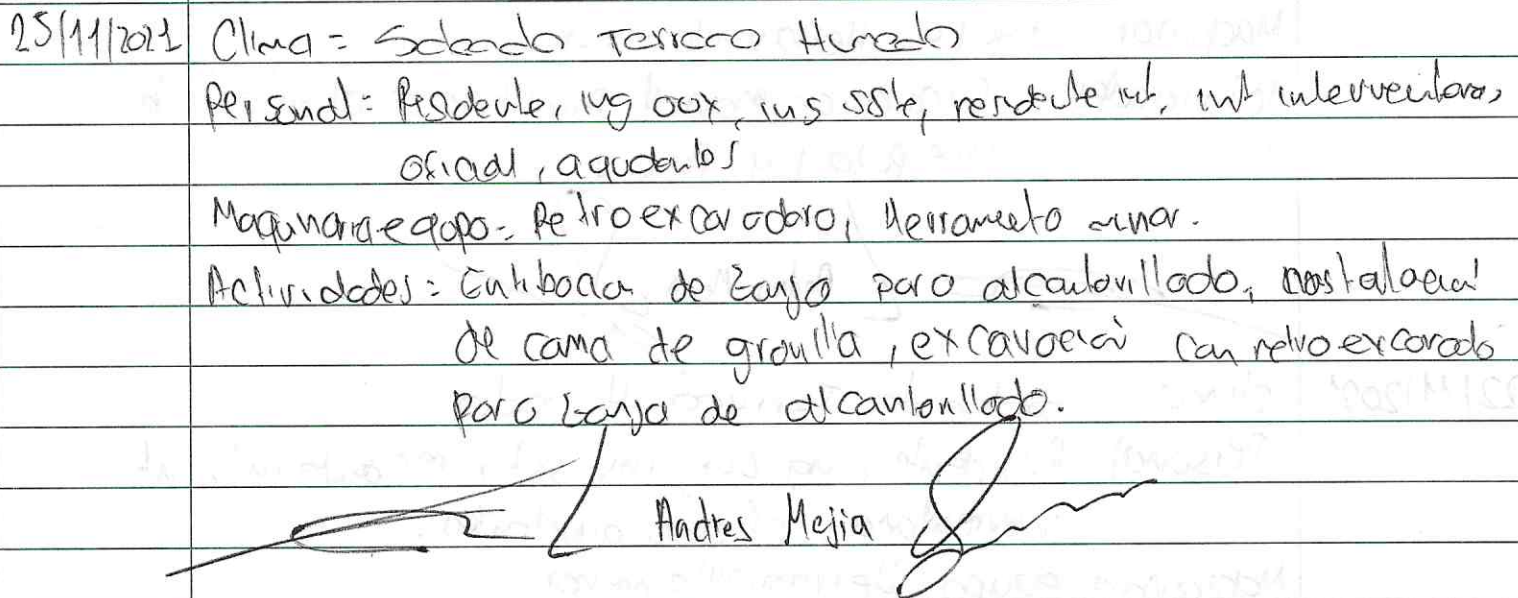 25/11/2021 Clima = Soleado Terreno Humedo
Personal = Residente, ing aux, ins sste, residente int, int interventora,
oficial, ayudantes
Maquinaria e equipo = Retroexcavadora, Herramienta menor.
Actividades = Entibacion de zanja para alcantarillado, instalación
de cama de gravilla, excavación con retroexcavado
para zanja de alcantarillado.
Andres Mejia